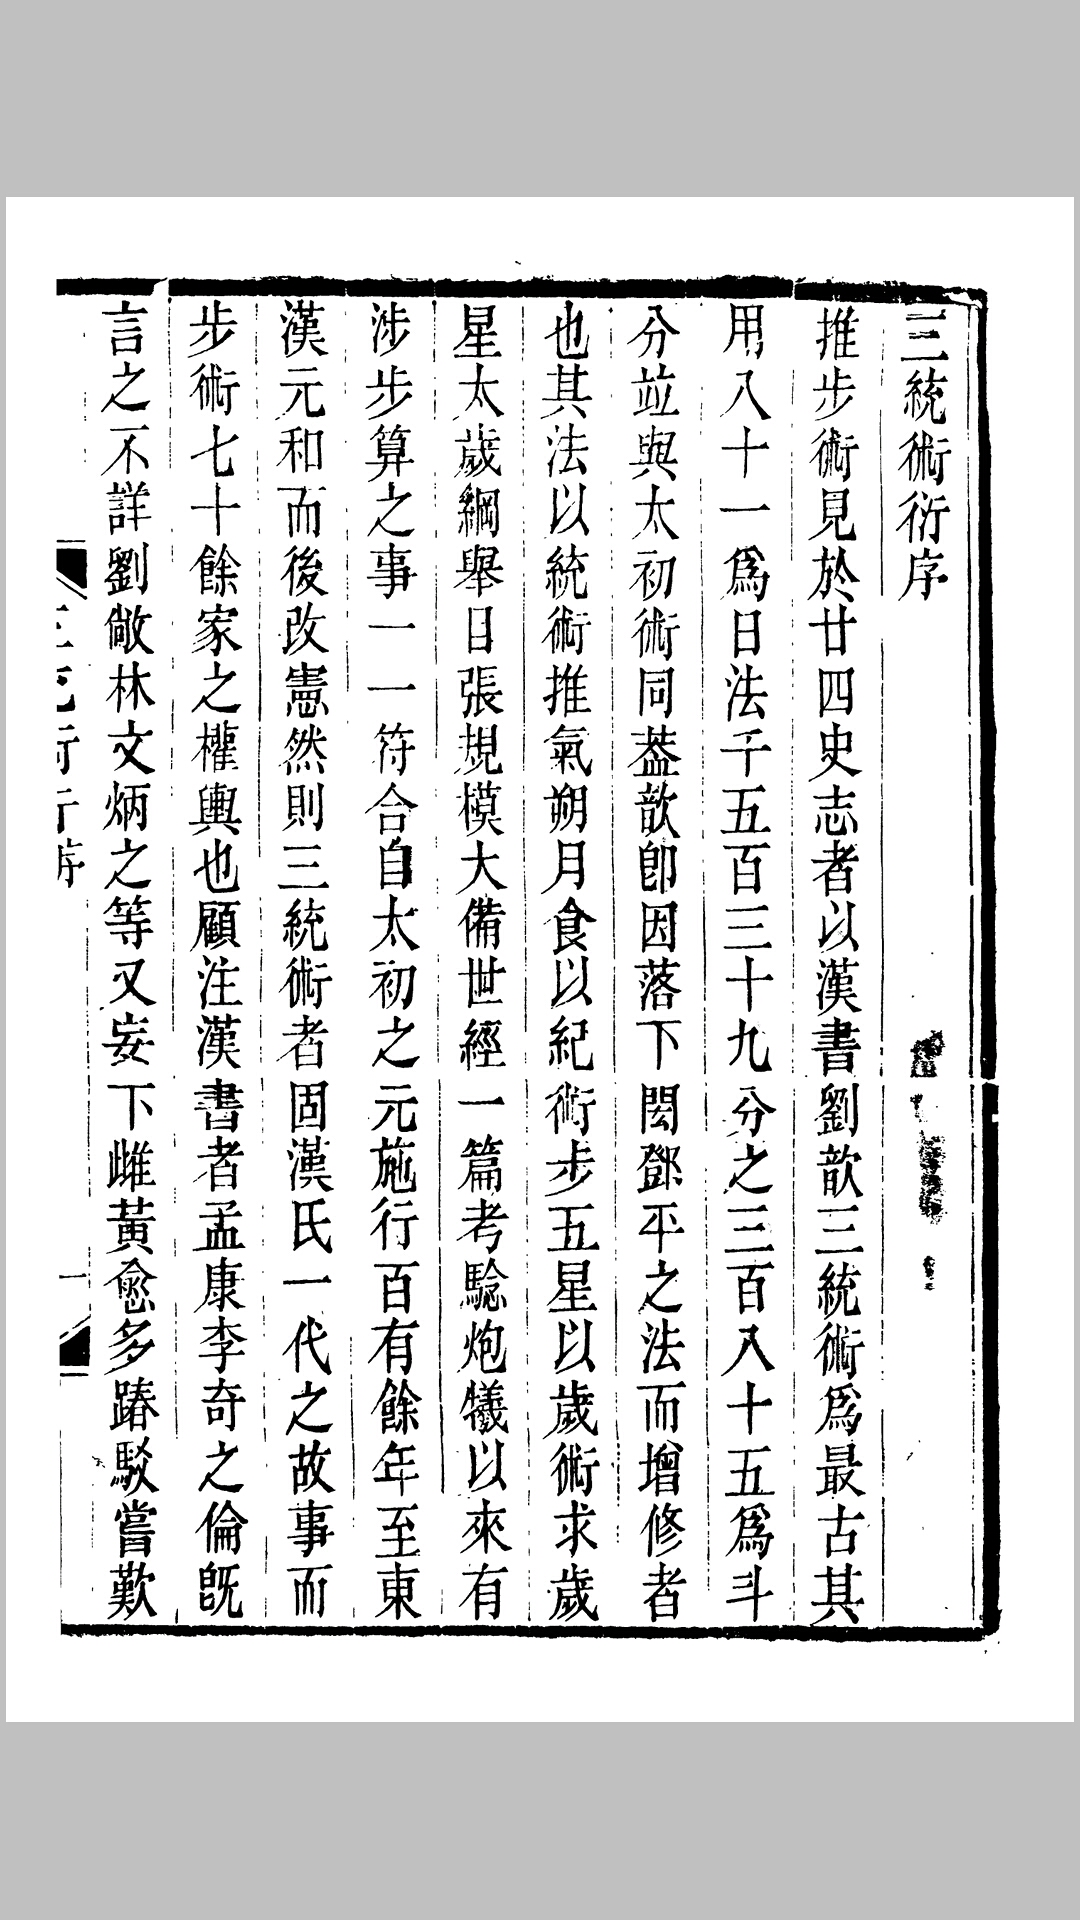 三統術衍序
推步術見於廿四史志者以漢書劉歆三統術爲最古其
用八十一爲日法千五百三十九分之三百八十五爲斗
分並與太初術同葢歆卽因落下閎鄧平之法而增修者
也其法以統術推氣朔月食以紀術步五星以歲術求歲
星太歲綱舉目張規模大備世經一篇考驗炮犧以來有
涉步算之事一一符合自太初之元施行百有餘年至東
漢元和而後改憲然則三統術者固漢氏一代之故事而
步術七十餘家之權輿也顧注漢書者孟康李奇之倫旣
言之不詳劉敞林文炳之等又妄下雌黃愈多踳駁嘗歎
一